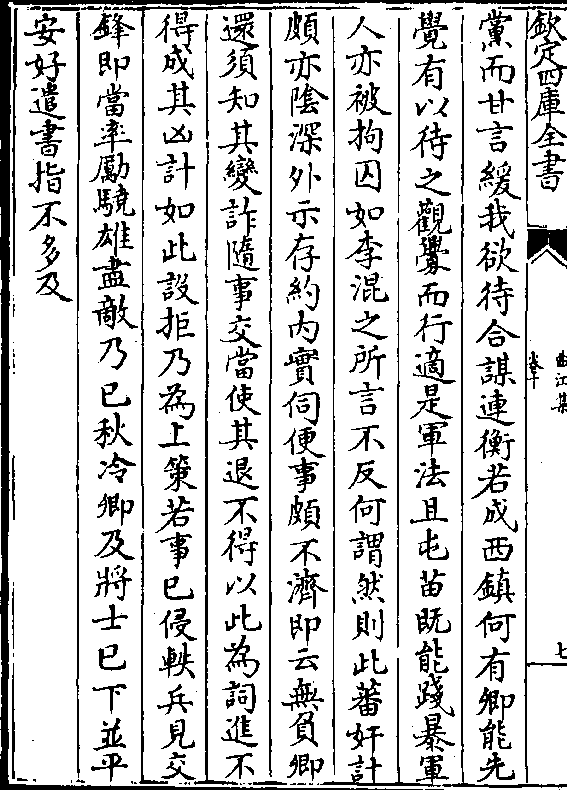 欽定四庫全書
曲江集
卷十
七
黨而甘言緩我欲待合謀連衡若成西鎮何有卿能先
覺有以待之觀釁而行適是軍法且屯苗既能踐暴軍
人亦被拘囚如李混之所言不反何謂然則此蕃奸計
頗亦陰深外示存約内實伺便事頗不濟即云無負卿
還須知其變詐隨事交當使其退不得以此為詞進不
得成其凶計如此設拒乃為上策若事已侵軼兵見交
鋒即當率勵驍雄盡敵乃已秋冷卿及將士已下並平
安好遣書指不多及